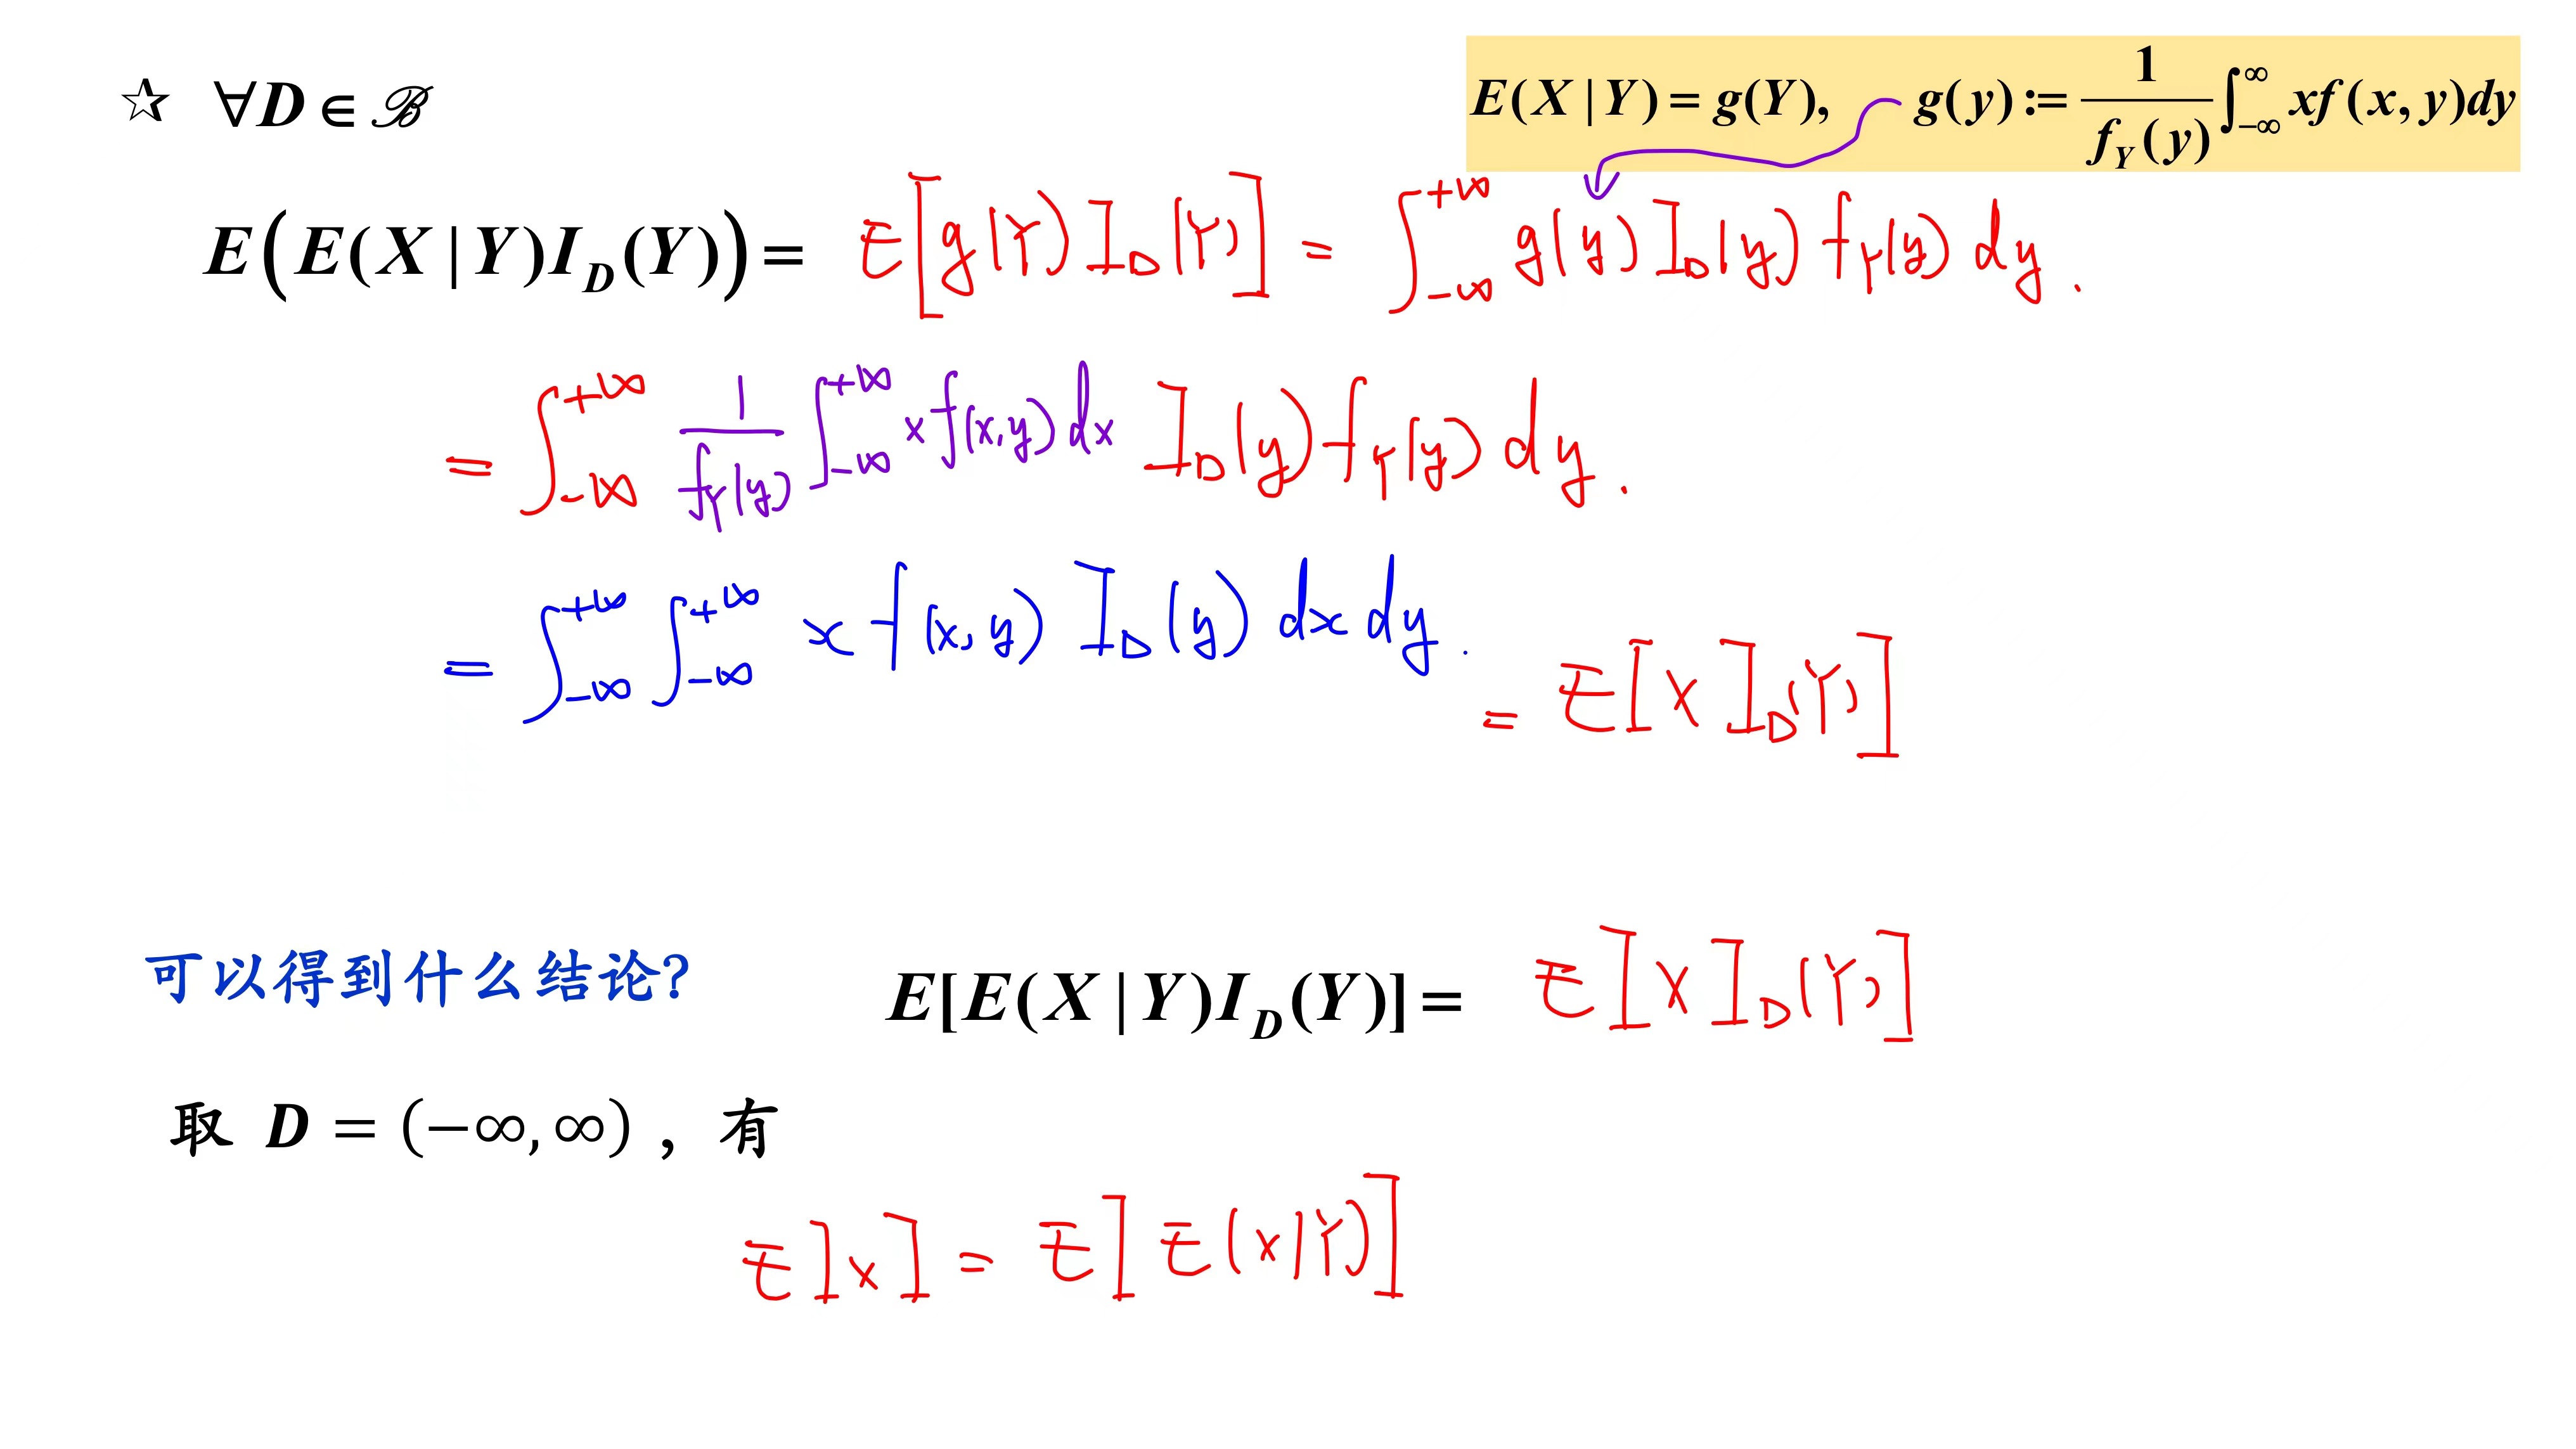 ☆ ∀D ∈ ℬ
E(X|Y) = g(Y), g(y) := 1/f_Y(y) ∫_{-∞}^{∞} xf(x, y)dy
E(E(X|Y)I_D(Y)) = E[g(Y) I_D(Y)] = ∫_{-∞}^{+∞} g(y) I_D(y) f_Y(y) dy.
= ∫_{-∞}^{+∞} 1/f_Y(y) ∫_{-∞}^{+∞} x f(x,y) dx I_D(y) f_Y(y) dy.
= ∫_{-∞}^{+∞} ∫_{-∞}^{+∞} x f(x,y) I_D(y) dx dy.
= E[X I_D(Y)]
可以得到什么结论? E[E(X|Y)I_D(Y)] = E[X I_D(Y)]
取 D = (−∞, ∞) , 有
E[X] = E[E(X|Y)]